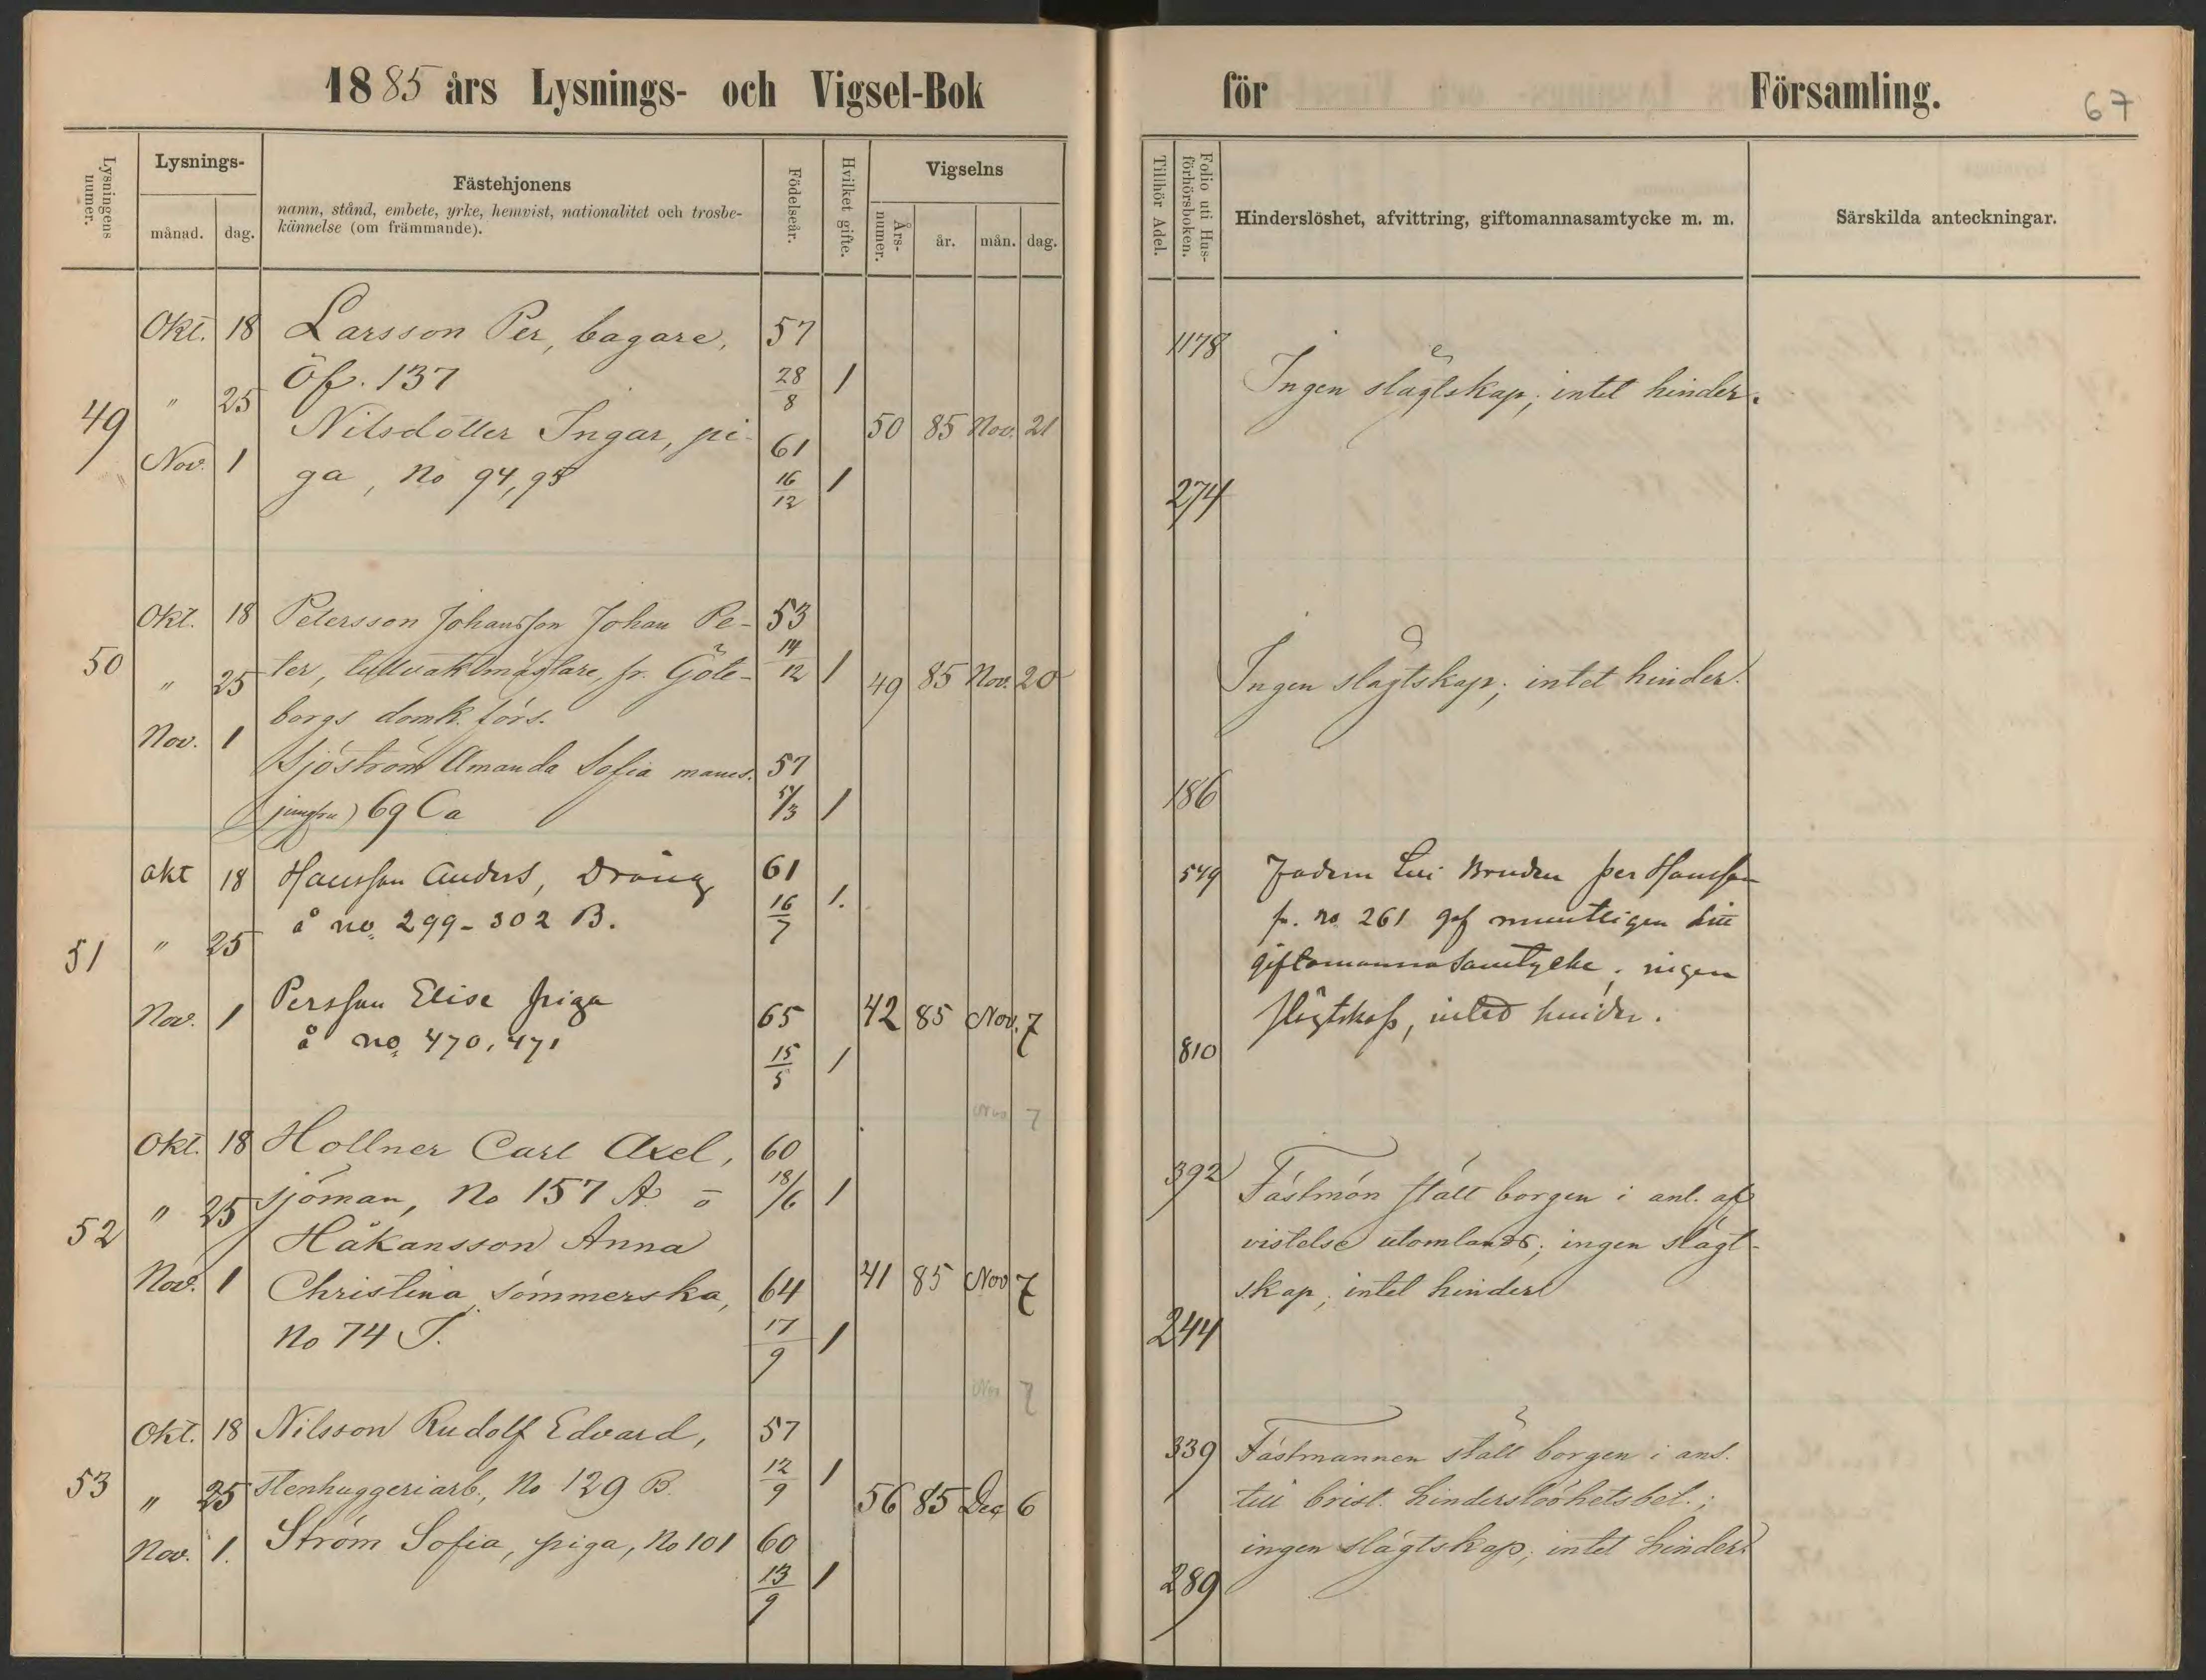 1885 års Lysnings- och Vigsel-Bok
för Församling.
67
Lysningens numer.
Lysnings-
månad. dag.
Fästehjonens
namn, stånd, embete, yrke, hemvist, nationalitet och trosbe-
kännelse (om främmande).
Födelseår.
Hvilket gifte.
Vigselns
Års-numer. år. mån. dag.
Tillhör Adel.
Folio uti Hus-förhörsboken.
Hinderslöshet, afvittring, giftomannasamtycke m. m.
Särskilda anteckningar.
Okt. 18 Larsson Per, bagare, 57 1178
Öf. 137 28/8 1 Ingen slägtskap; intet hinder.
49 " 25
Nilsdotter Ingar, pi- 61 50 85 Nov. 21
Nov. 1 ga, No 94,95 16/12 1 274
Okt. 18 Petersson Johansson Johan Pe- 53
50 " 25 ter, tullvaktmästare, fr. Göte- 14/12 1 49 85 Nov. 20 Ingen slägtskap; intet hinder.
borgs domk. förs.
Nov. 1
Sjöström Amanda Sofia mams. 57
(jungfru) 69 Ca 1 186
Okt 18 Hansson Anders, Dräng 61 549 Fadern Per Hansson
å no. 299-302 B. 16/7 1. fr. no 261 gaf muntligen sitt
51 " 25 giftomannasamtycke; ingen
Persson Elise piga slägtskap, intet hinder.
Nov. 1 65 42 85 Nov. 7
å no. 470, 471 15/5 1 810
Nov 7
Okt. 18 Hollner Carl Axel, 60 392
" 25 sjöman, No 157 A. ö 18/6 1 Fästmön stält borgen i anl. af
52 Håkansson Anna vistelse utomlands; ingen slägt-
Nov. 1 Christina, sömmerska, 64 41 85 Nov 7 skap, intet hinder
No 74 J. 17/9 1 244
Nov 7
Okt. 18 Nilsson Rudolf Edvard, 57 339 Fästmannen stält borgen i anl.
53 " 25 stenhuggeriarb., No 129 B. 12/9 1 56 85 Dec 6 till brist. hinderslöshetsbet.;
Nov. 1. Ström Sofia, piga, No 101 60 ingen slägtskap; intet hinder.
13/9 1 289